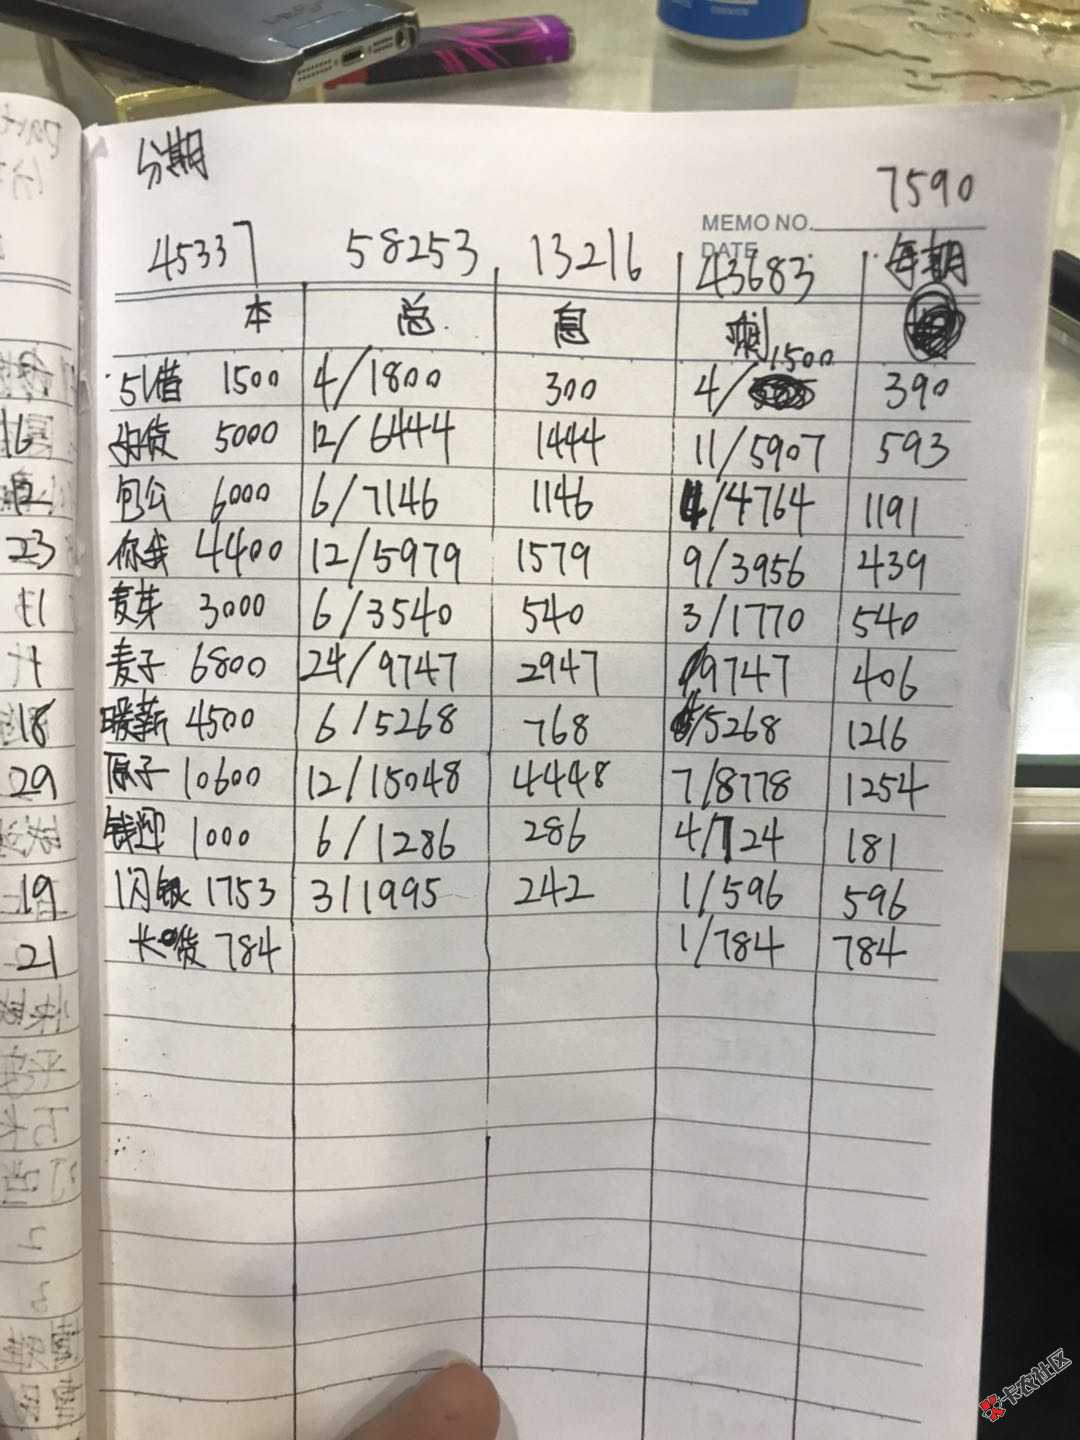 分期
7590
MEMO NO.
DATE
45337 58253 13216 43683 每期
本 总 息 剩
51借 1500 4/1800 300 4/1500 390
5000 12/6444 1444 11/5907 593
包公 6000 6/7146 1146 4/4764 1191
你我 4400 12/5979 1579 9/3956 439
麦芽 3000 6/3540 540 3/1770 540
麦子 6800 24/9747 2947 9747 406
暖薪 4500 6/5268 768 /5268 1216
原子 10600 12/15048 4448 7/8778 1254
钱迎 1000 6/1286 286 4/724 181
闪银 1753 3/1995 242 1/596 596
784 1/784 784
16
23
11
18
29
19
21
卡农社区